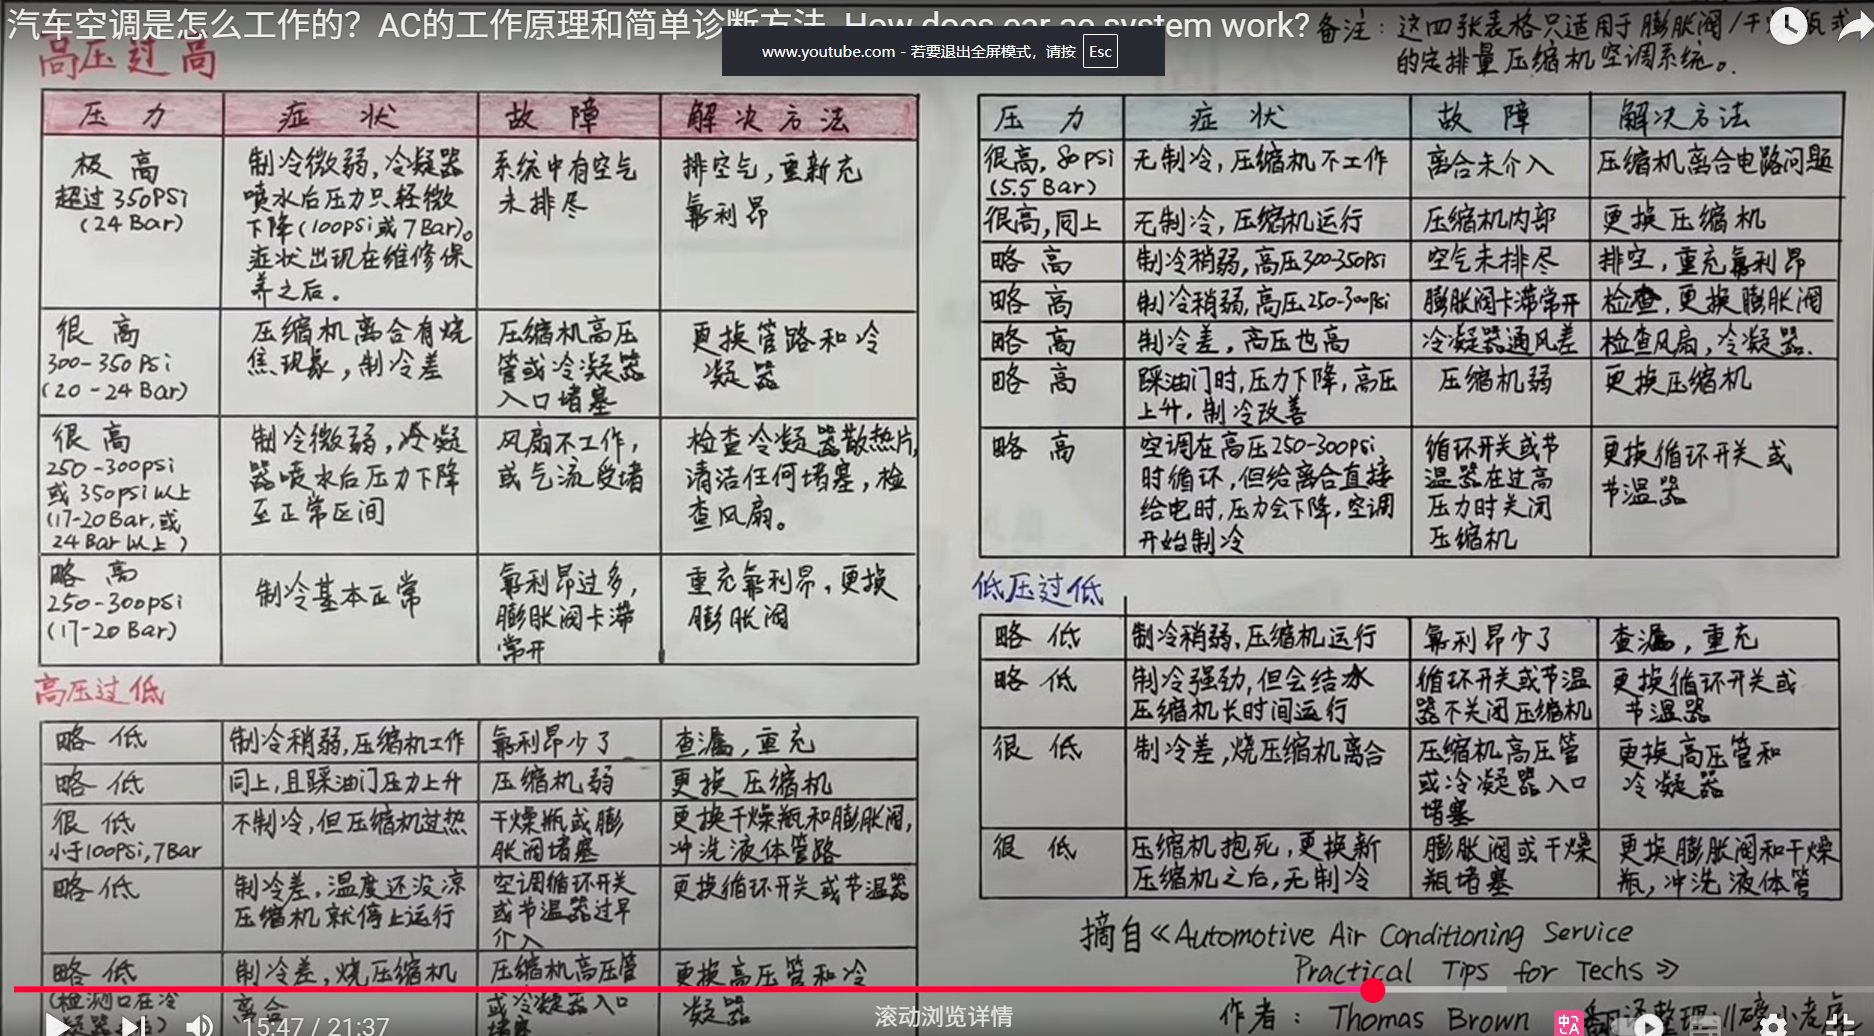 汽车空调是怎么工作的？AC的工作原理和简单诊断方法
tem work?
www.youtube.com - 若要退出全屏模式，请按 Esc
备注：这四张表格只适用于膨胀阀/干
的定排量压缩机空调系统。
高压过高
压力 症状 故障 解决方法
极高
超过350PSi
(24 Bar)
制冷微弱,冷凝器
喷水后压力只轻微
下降(100psi或7Bar)。
症状出现在维修保
养之后。
系统中有空气
未排尽
排空气,重新充
氟利昂
很高
300-350 PSi
(20-24 Bar)
压缩机离合有烧
焦现象,制冷差
压缩机高压
管或冷凝器
入口堵塞
更换管路和冷
凝器
很高
250-300psi
或350psi以上
(17-20Bar,或
24Bar以上)
制冷微弱,冷凝
器喷水后压力下降
至正常区间
风扇不工作,
或气流受堵
检查冷凝器散热片,
清洁任何堵塞,检
查风扇。
略高
250-300psi
(17-20 Bar)
制冷基本正常
氟利昂过多,
膨胀阀卡滞
常开
重充氟利昂,更换
膨胀阀
高压过低
略低 制冷稍弱,压缩机工作 氟利昂少了 查漏,重充
略低 同上,且踩油门压力上升 压缩机弱 更换压缩机
很低
小于100PSi,7Bar
不制冷,但压缩机过热
干燥瓶或膨
胀阀堵塞
更换干燥瓶和膨胀阀,
冲洗液体管路
略低
制冷差,温度还没凉
压缩机就停止运行
空调循环开关
或节温器过早
介入
更换循环开关或节温器
略低
(检测口在冷
制冷差,烧压缩机
离合
压缩机高压管
或冷凝器入口
堵塞
更换高压管和冷
凝器
压力 症状 故障 解决方法
很高,80psi
(5.5Bar)
无制冷,压缩机不工作 离合未介入 压缩机离合电路问题
很高,同上 无制冷,压缩机运行 压缩机内部 更换压缩机
略高 制冷稍弱,高压300-350PSi 空气未排尽 排空,重充氟利昂
略高 制冷稍弱,高压250-300psi 膨胀阀卡滞常开 检查,更换膨胀阀
略高 制冷差,高压也高 冷凝器通风差 检查风扇,冷凝器.
略高
踩油门时,压力下降,高压
上升,制冷改善
压缩机弱 更换压缩机
略高
空调在高压250-300psi
时循环,但给离合直接
给电时,压力会下降,空调
开始制冷
循环开关或节
温器在过高
压力时关闭
压缩机
更换循环开关或
节温器
低压过低
略低 制冷稍弱,压缩机运行 氟利昂少了 查漏,重充
略低
制冷强劲,但会结冰
压缩机长时间运行
循环开关或节温
器不关闭压缩机
更换循环开关或
节温器
很低
制冷差,烧压缩机离合
压缩机高压管
或冷凝器入口
堵塞
更换高压管和
冷凝器
很低
压缩机抱死,更换新
压缩机之后,无制冷
膨胀阀或干燥
瓶堵塞
更换膨胀阀和干燥
瓶,冲洗液体管
摘自《Automotive Air Conditioning Service
Practical Tips for Techs》
作者: Thomas Brown
15:47 / 21:37
滚动浏览详情